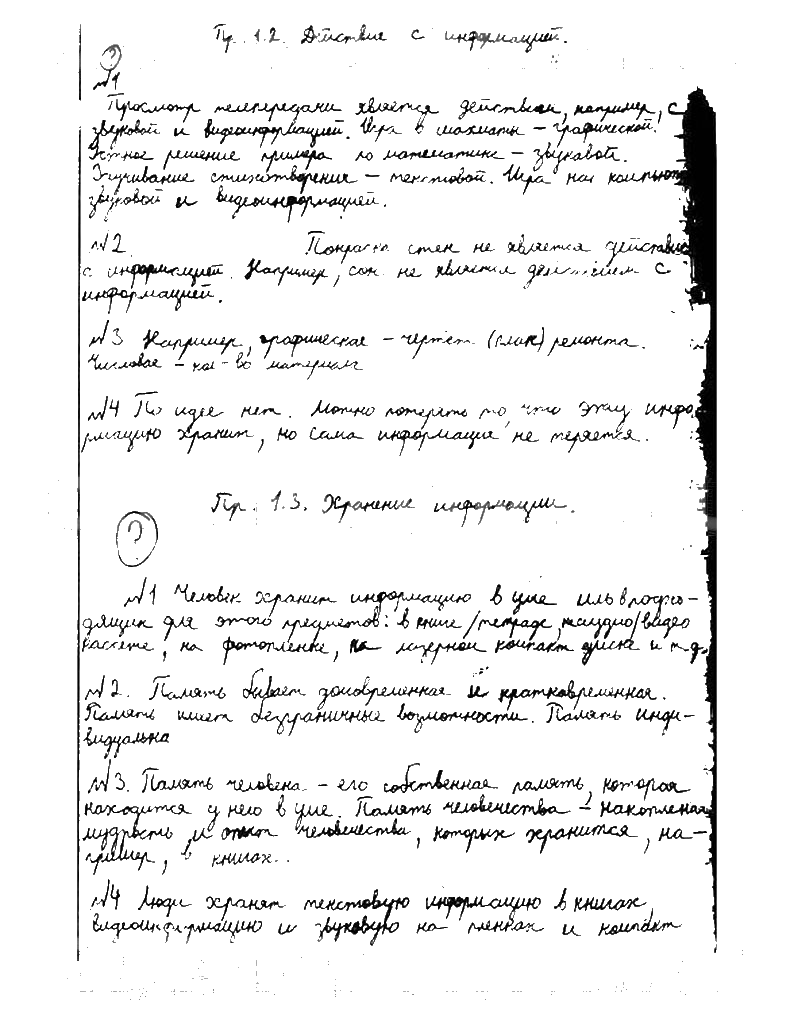 Пр. 1.2. Действие с информацией.
?
№1
Просмотр телепередачи является действием, например, с
звуковой и видеоинформацией. Игра в шахматы – графической.
Устное решение примера по математике – звуковой.
Заучивание стихотворение – текстовой. Игра на
звуковой и видеоинформацией.
№2 Покраска стен не является действие
с информацией. Например, сон не является действием с
информацией.
№3 Например, графическое – чертёж (план) ремонта.
Числовое – кол-во материала
№4 По идее нет. Можно потерять то, что эту инфо
рмацию хранит, но сама информация не теряется.
Пр. 1.3. Хранение информации.
?
№1 Человек хранит информацию в уме или в подхо-
дящих для этого предметов: в книге/тетраде, аудио/видео
кассете, на фотопленке, на лазерном компакт диске и т.д.
№2. Память бывает долговременная и кратковременная.
Память имеет безграничные возможности. Память инди-
видуальна
№3. Память человека – его собственная память, которая
находится у него в уме. Память человечества – накопленая
мудрость и опыт человечества, которых хранится, на-
пример, в книгах..
№4 Люди хранят текстовую информацию в книгах,
видеоинформацию и звуковую на пленках и компакт